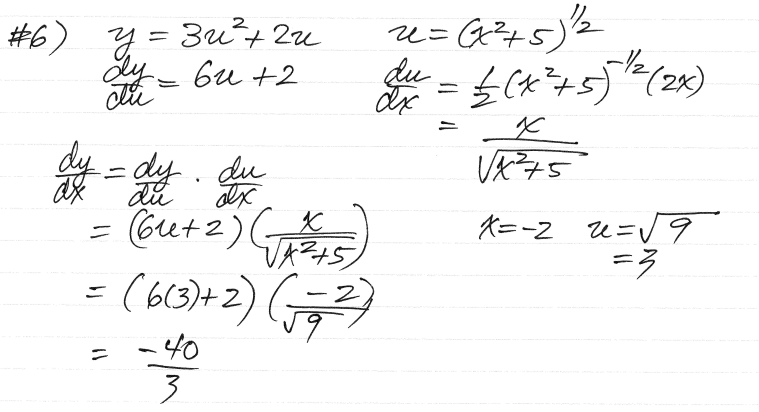 #6) y = 3u²+2u u = (x²+5)^1/2
dy/du = 6u+2 du/dx = 1/2(x²+5)^-1/2(2x)
= x/√x²+5
dy/dx = dy/du · du/dx
= (6u+2)(x/√x²+5) x=-2 u=√9
=3
= (6(3)+2)(-2/√9)
= -40/3